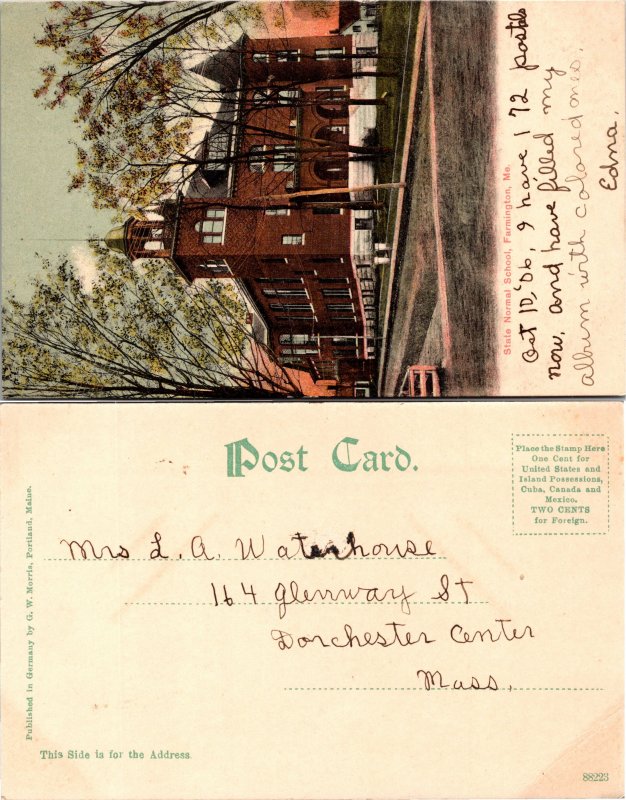 State Normal School, Farmington, Me.
Oct 10, '06, I have 172 postals
now, and have filled my
album with colored ones.
Edna.
Post Card.
Place the Stamp Here
One Cent for
United States and
Island Possessions,
Cuba, Canada and
Mexico.
TWO CENTS
for Foreign.
Published in Germany by G. W. Morris, Portland, Maine.
Mrs L. A. Waterhouse
164 Glenway St
Dorchester Center
Mass.
This Side is for the Address.
88223